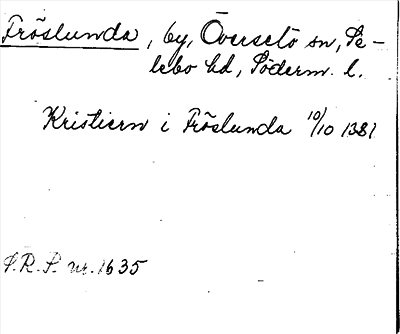 Fröslunda, by, Överselö sn, Se-
lebo hd, Söderm. l.
Kristiern i Fröslunda 10/10 1381
S.R.P. nr. 1635